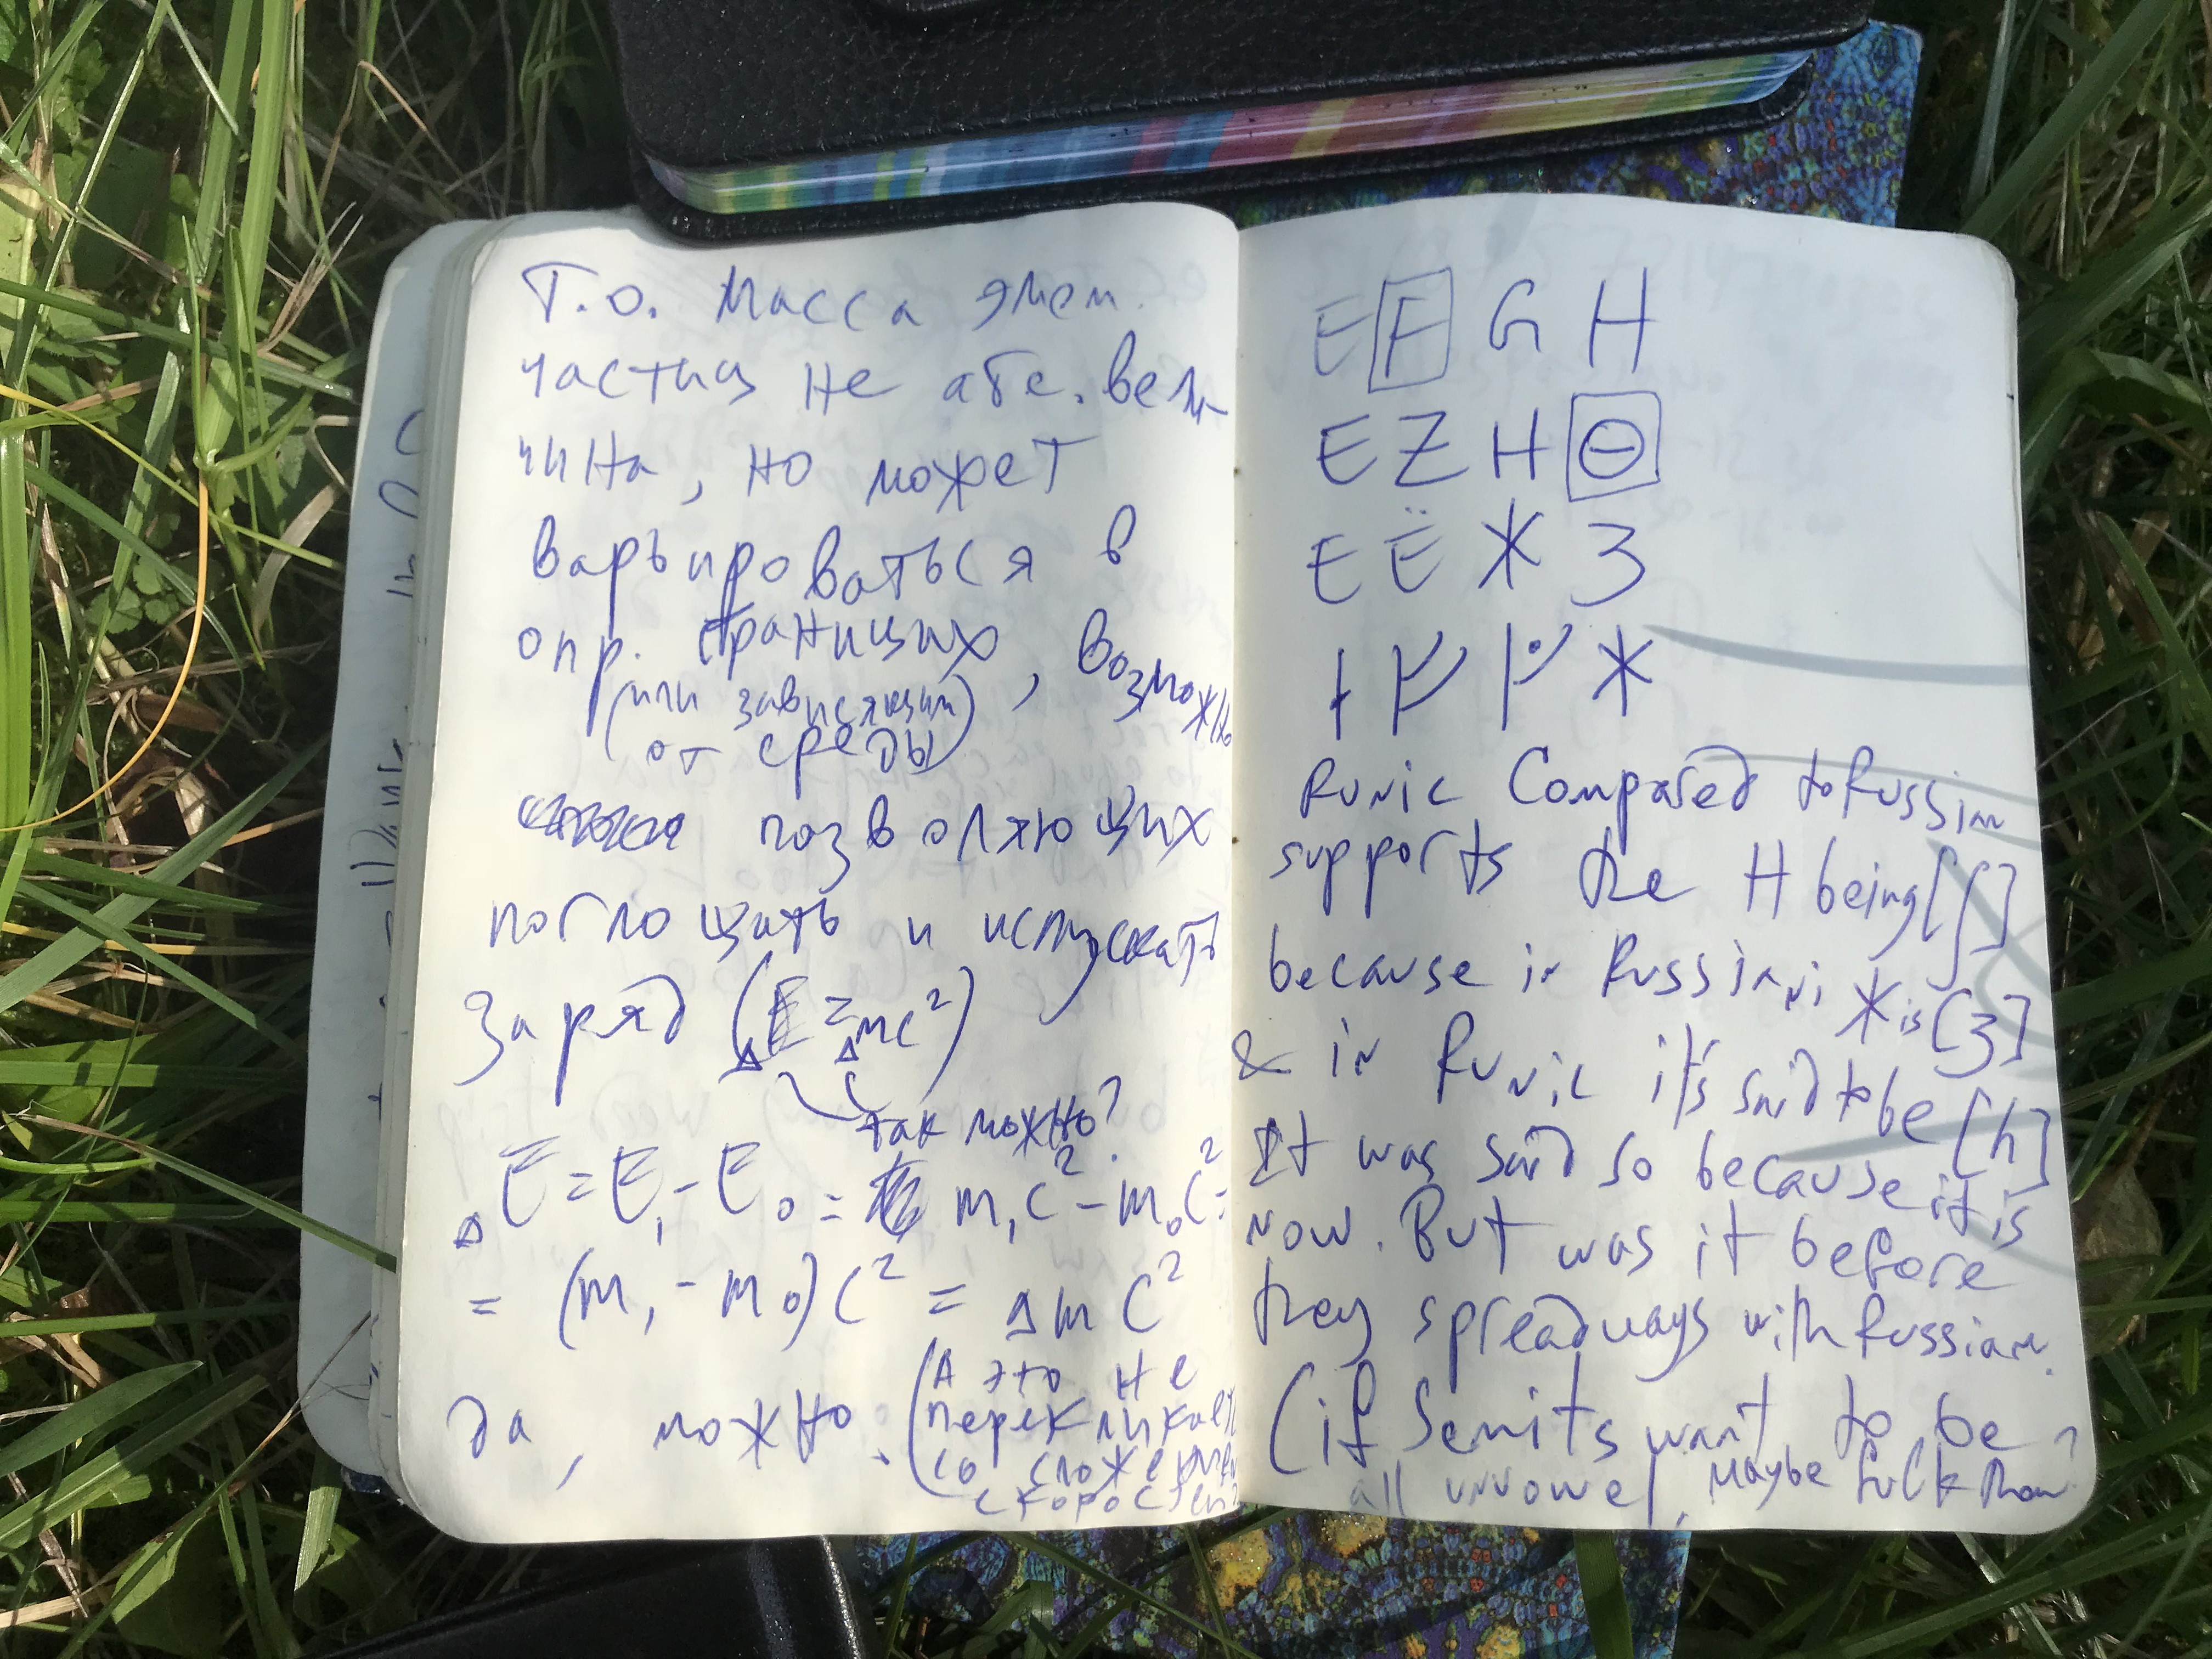 Т.О. масса элем.
частиц не абс. вели-
чина, но может
варьироваться в
опр. границах, возможно
(или зависящим
от среды)
позволяющих
поглощать и испускать
заряд (Δmc²)
так можно?
ΔE = E₁ - E₀ = m₁c² - m₀c² =
= (m₁ - m₀)c² = Δmc²
Да, можно.
(А это не
перекликает
со
скорос
E F G H
E Z H Θ
E Ë Ж З
Runic Compared to Russian
supports the H being [ʃ]
because in Russian Ж is [3]
& in Runic it's said to be [h]
It was said so because it is
now. But was it before
they spread ways with Russian.
(if semits want to be
all unowe, maybe fulk than?